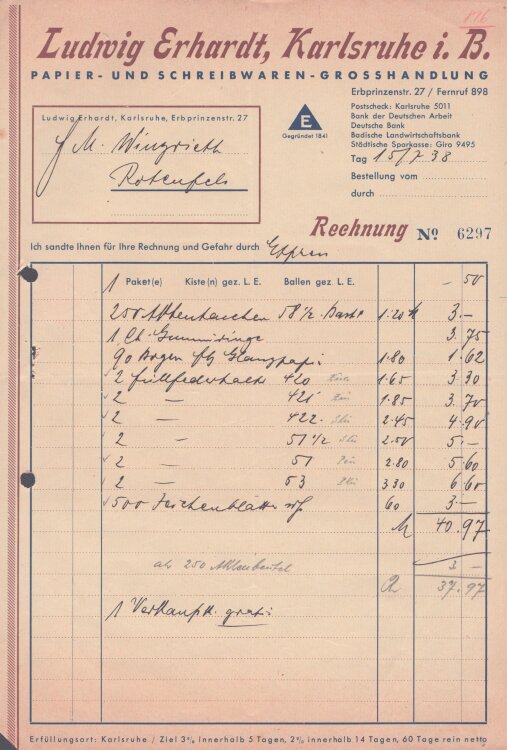 116
Ludwig Erhardt, Karlsruhe i. B.
PAPIER- UND SCHREIBWAREN-GROSSHANDLUNG
Erbprinzenstr. 27 / Fernruf 898
Ludwig Erhardt, Karlsruhe, Erbprinzenstr. 27
E
Gegründet 1841
Postscheck: Karlsruhe 5011
Bank der Deutschen Arbeit
Deutsche Bank
Badische Landwirtschaftsbank
Städtische Sparkasse: Giro 9495
M. Wingrieth
Rotenfels
Tag 15/7 38
Bestellung vom
durch
Rechnung No 6297
Ich sandte Ihnen für Ihre Rechnung und Gefahr durch Expreß
1 Paket(e) Kiste(n) gez. L. E. Ballen gez. L. E. - 50
250 58 1/2 1.20 3.-
1 Gummiringe 3.75
90 Bogen Glanzpapier 1.80 1.62
2 Füllfederhalter 420 1.65 3.30
2 — 421 1.85 3.70
2 — 422 2.45 4.90
2 — 51 1/2 2.50 5.-
2 — 51 2.80 5.60
2 — 53 3.30 6.60
500 Zeichenblätter 60 3.-
M 40.97
ab 250 Aktenbeutel 3.-
37.97
1 Verkaufsk. gratis
Erfüllungsort: Karlsruhe / Ziel 3% innerhalb 5 Tagen, 2% innerhalb 14 Tagen, 60 Tage rein netto